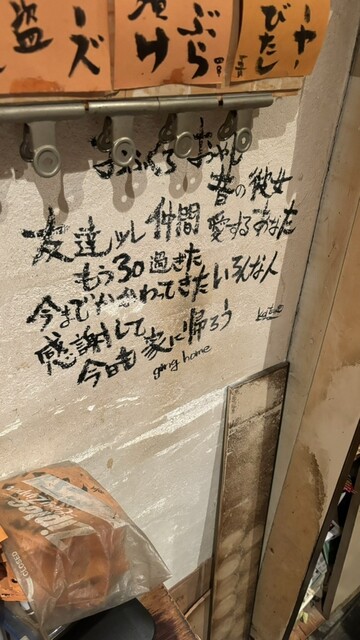 盗
ーズ
漬け
ぶら
ーやー
びたし
おふくろ おやじ
昔の彼女
友達 仲間 愛するあなた
もう30過ぎた
今までかかわってきたいろんな人
感謝して
今日も家に帰ろう
going home
CLOSED